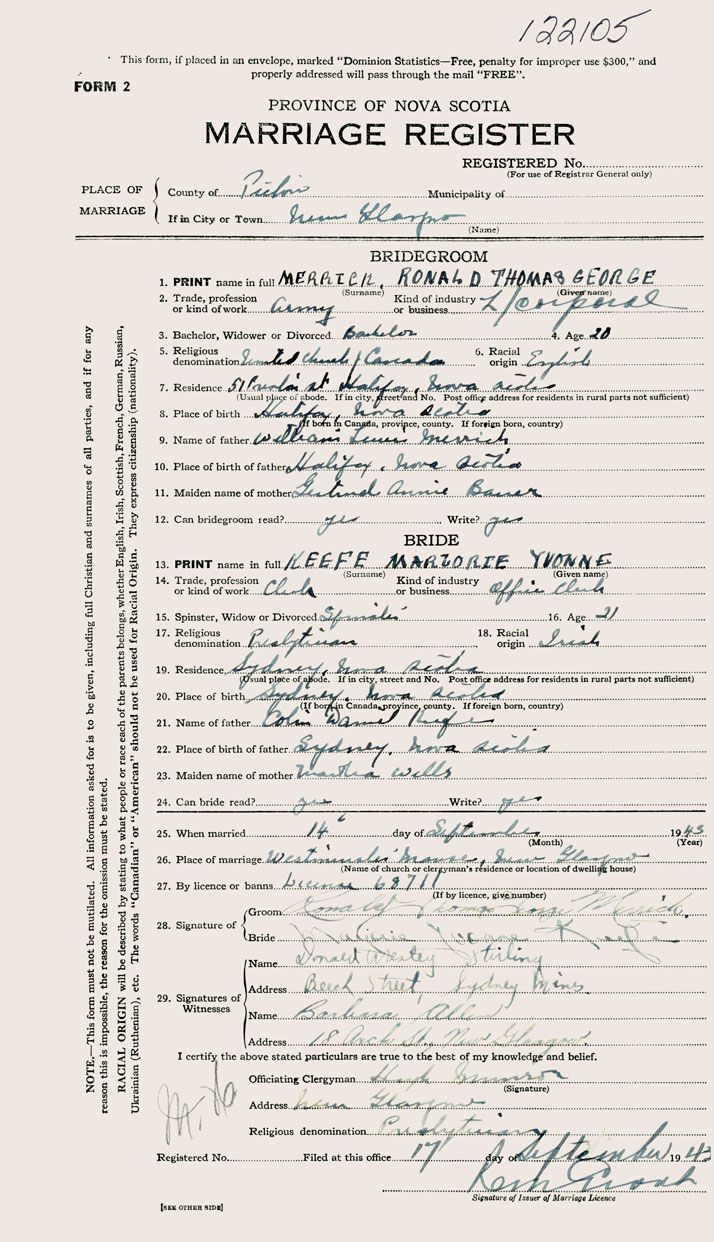 122105
This form, if placed in an envelope, marked "Dominion Statistics—Free, penalty for improper use $300," and
properly addressed will pass through the mail "FREE".
FORM 2
PROVINCE OF NOVA SCOTIA
MARRIAGE REGISTER
REGISTERED No.
(For use of Registrar General only)
PLACE OF MARRIAGE
County of Pictou Municipality of
If in City or Town New Glasgow
(Name)
BRIDEGROOM
1. PRINT name in full MERRICK, RONALD THOMAS GEORGE
(Surname) (Given name)
2. Trade, profession or kind of work Army Kind of industry or business L/corporal
3. Bachelor, Widower or Divorced Bachelor 4. Age 20
5. Religious denomination United Church of Canada 6. Racial origin English
7. Residence 51 st Halifax, Nova Scotia
(Usual place of abode. If in city, street and No. Post office address for residents in rural parts not sufficient)
8. Place of birth Halifax, Nova Scotia
(If born in Canada, province, county. If foreign born, country)
9. Name of father William Lewis Merrick
10. Place of birth of father Halifax, Nova Scotia
11. Maiden name of mother Gertrude Annie
12. Can bridegroom read? yes Write? yes
BRIDE
13. PRINT name in full KEEFE MARJORIE YVONNE
(Surname) (Given name)
14. Trade, profession or kind of work Clerk Kind of industry or business Office Clerk
15. Spinster, Widow or Divorced Spinster 16. Age 21
17. Religious denomination Presbyterian 18. Racial origin Irish
19. Residence Sydney, Nova Scotia
(Usual place of abode. If in city, street and No. Post office address for residents in rural parts not sufficient)
20. Place of birth Sydney, Nova Scotia
(If born in Canada, province, county. If foreign born, country)
21. Name of father Colin Daniel Keefe
22. Place of birth of father Sydney, Nova Scotia
23. Maiden name of mother Martha Wells
24. Can bride read? yes Write? yes
25. When married 14 day of September 1943
(Month) (Year)
26. Place of marriage Westminster Manse, New Glasgow
(Name of church or clergyman's residence or location of dwelling house)
27. By licence or banns License 68711
(If by licence, give number)
28. Signature of
Groom Ronald Thomas George Merrick.
Bride Marjorie Yvonne Keefe
29. Signatures of Witnesses
Name Donald Wesley Stirling
Address Beech Street, Sydney Mines
Name Barbara Allen
Address 18 Arch St., New Glasgow.
I certify the above stated particulars are true to the best of my knowledge and belief.
Officiating Clergyman Hugh Munroe
(Signature)
Address New Glasgow
Religious denomination Presbyterian
Registered No. Filed at this office 17 day of September 1943
Signature of Issuer of Marriage Licence
[SEE OTHER SIDE]
NOTE.—This form must not be mutilated. All information asked for is to be given, including full Christian and surnames of all parties, and if for any
reason this is impossible, the reason for the omission must be stated.
RACIAL ORIGIN will be described by stating to what people or race each of the parents belongs, whether English, Irish, Scottish, French, German, Russian,
Ukrainian (Ruthenian), etc. The words "Canadian" or "American" should not be used for Racial Origin. They express citizenship (nationality).